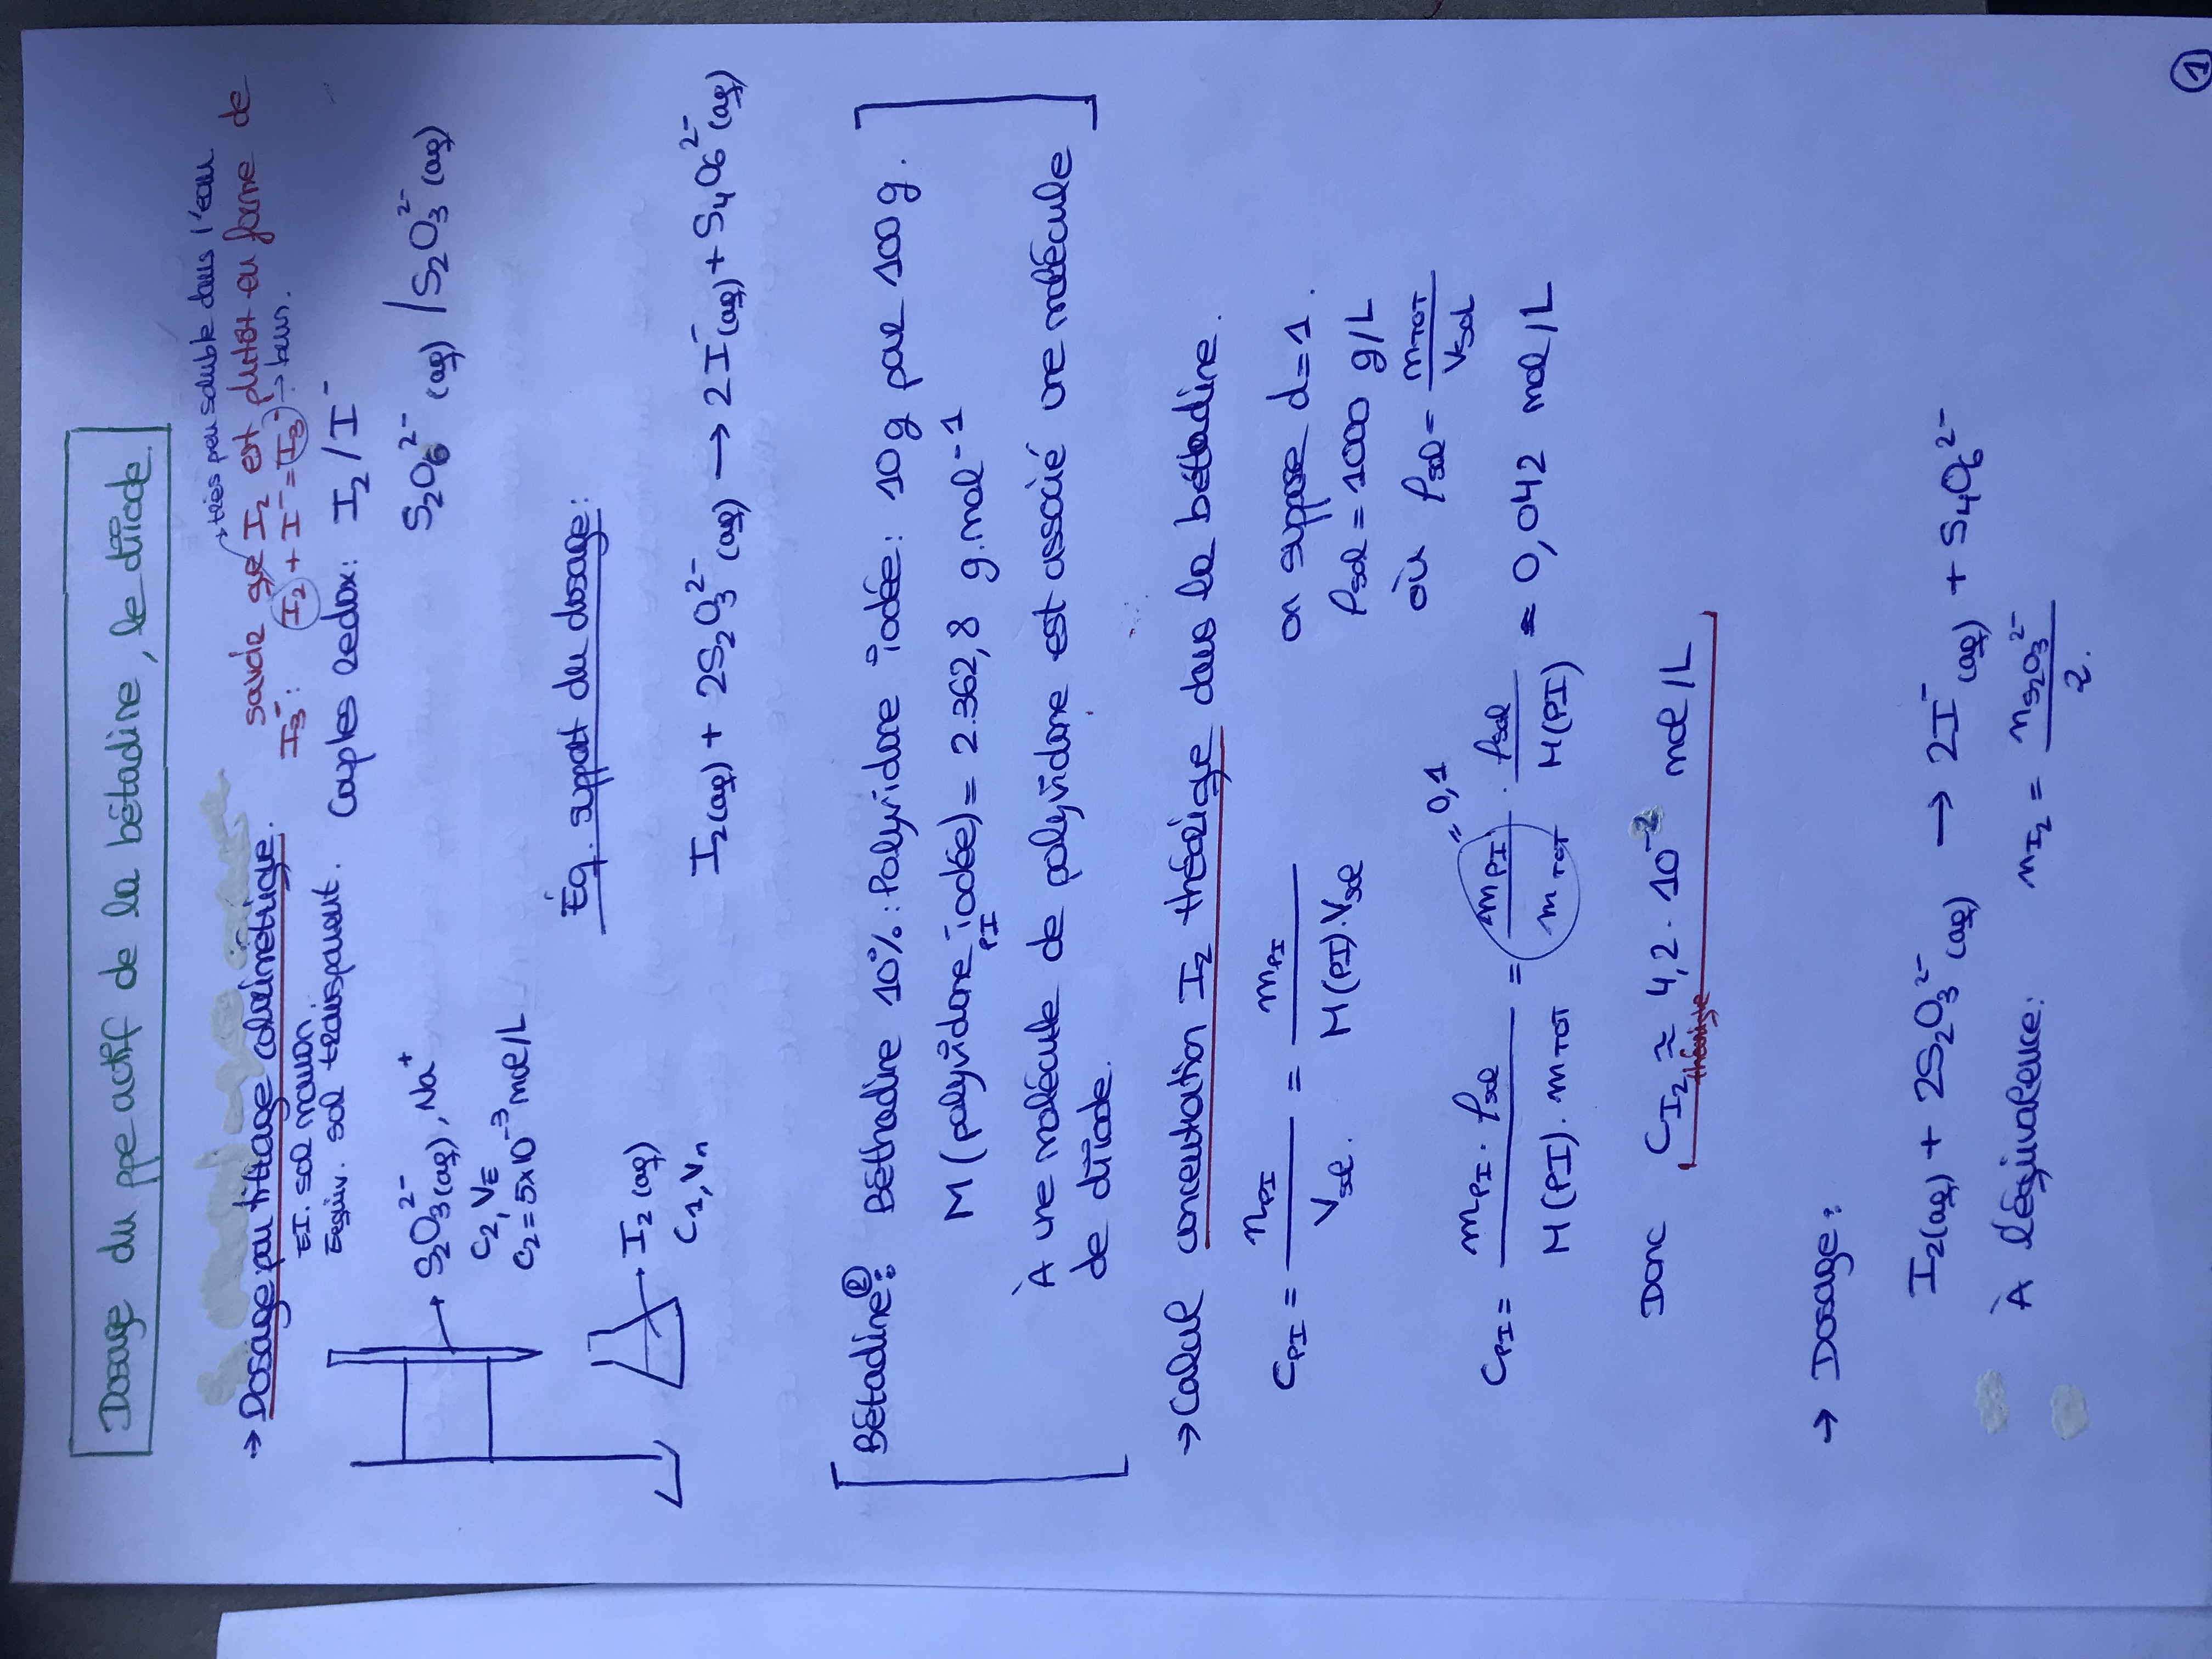 Dosage du ppe actif de la bétadine, le diiode.
→ très peu soluble dans l'eau
→ Dosage par titrage colorimétrique.
savoir que I₂ est plutôt en forme de
I₃⁻ : I₂ + I⁻ = I₃⁻ → brun.
EI. sol marron.
Eequiv. sol transparent.
Couples redox : I₂ / I⁻
S₂O₆²⁻ (aq) / S₂O₃²⁻ (aq)
S₂O₃²⁻(aq), Na⁺
C₂, VE
C₂ = 5×10⁻³ mol/L
Éq. support du dosage :
I₂ (aq)
C1, V1
I₂(aq) + 2S₂O₃²⁻(aq) → 2I⁻(aq) + S₄O₆²⁻(aq)
Bétadine® : Béthadine 10% : Polyvidone iodée : 10g par 100g.
M (polyvidone iodée) = 2.362,8 g.mol⁻¹
PI
À une molécule de polyvidone est associé une molécule
de diiode.
→ Calcul concentration I₂ théorique dans la bétadine.
CPI = nPI / Vsol. = mPI / M(PI).Vsol
on suppose d=1.
ρsol = 1000 g/L
où ρsol = mTOT / VSOL
CPI = mPI . ρsol / M(PI) . mTOT = mPI / mTOT . ρsol / M(PI) = 0,042 mol/L
= 0,1
Donc CI₂ ≈ 4,2 . 10⁻² mol/L
théorique
→ Dosage :
I₂(aq) + 2S₂O₃²⁻(aq) → 2I⁻(aq) + S₄O₆²⁻
À l'équivalence : nI₂ = nS₂O₃²⁻ / 2.
1